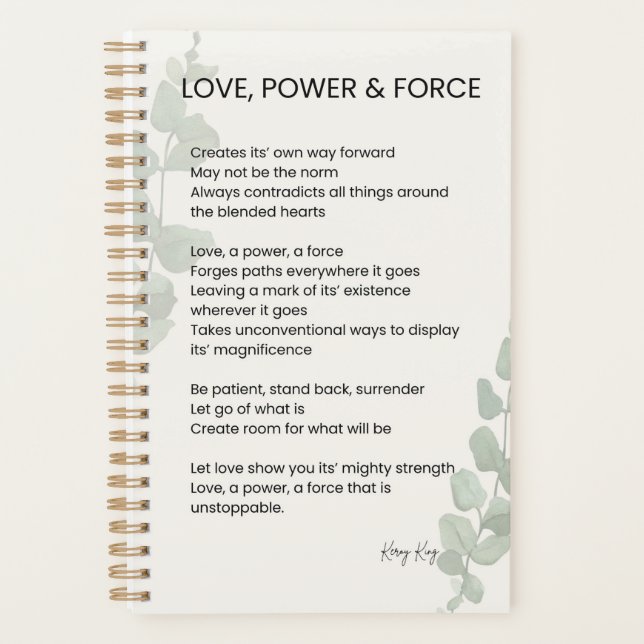 LOVE, POWER & FORCE
Creates its’ own way forward
May not be the norm
Always contradicts all things around
the blended hearts
Love, a power, a force
Forges paths everywhere it goes
Leaving a mark of its’ existence
wherever it goes
Takes unconventional ways to display
its’ magnificence
Be patient, stand back, surrender
Let go of what is
Create room for what will be
Let love show you its’ mighty strength
Love, a power, a force that is
unstoppable.
Keroy King